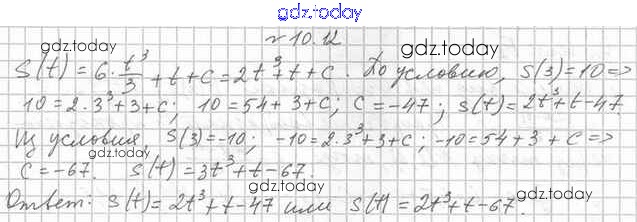 gdz.today
№ 10.12
gdz.today gdz.today
S(t) = 6 · t³/3 + t + C = 2t³ + t + C. По условию, S(3) = 10 =>
10 = 2·3³ + 3 + C; 10 = 54 + 3 + C; C = -47; S(t) = 2t³ + t - 47.
gdz.today gdz.today
Из условия, S(3) = -10; -10 = 2·3³ + 3 + C; -10 = 54 + 3 + C =>
gdz.today
C = -67. S(t) = 3t³ + t - 67.
gdz.today gdz.today
Ответ: S(t) = 2t³ + t - 47 или S(t) = 2t³ + t - 67.